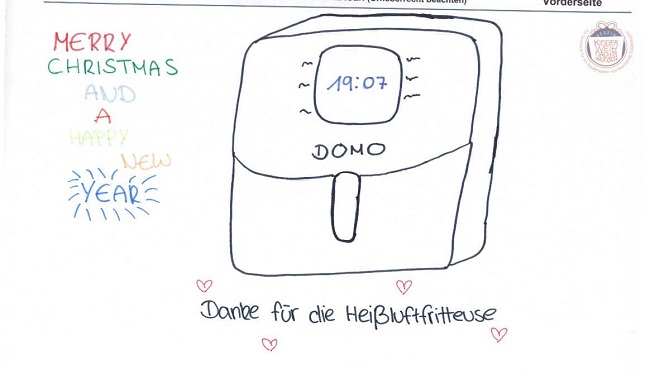 (Urheberrecht beachten)
Vorderseite
MERRY
CHRISTMAS
AND
A
HAPPY
NEW
YEAR
19:07
DOMO
Danke für die Heißluftfritteuse